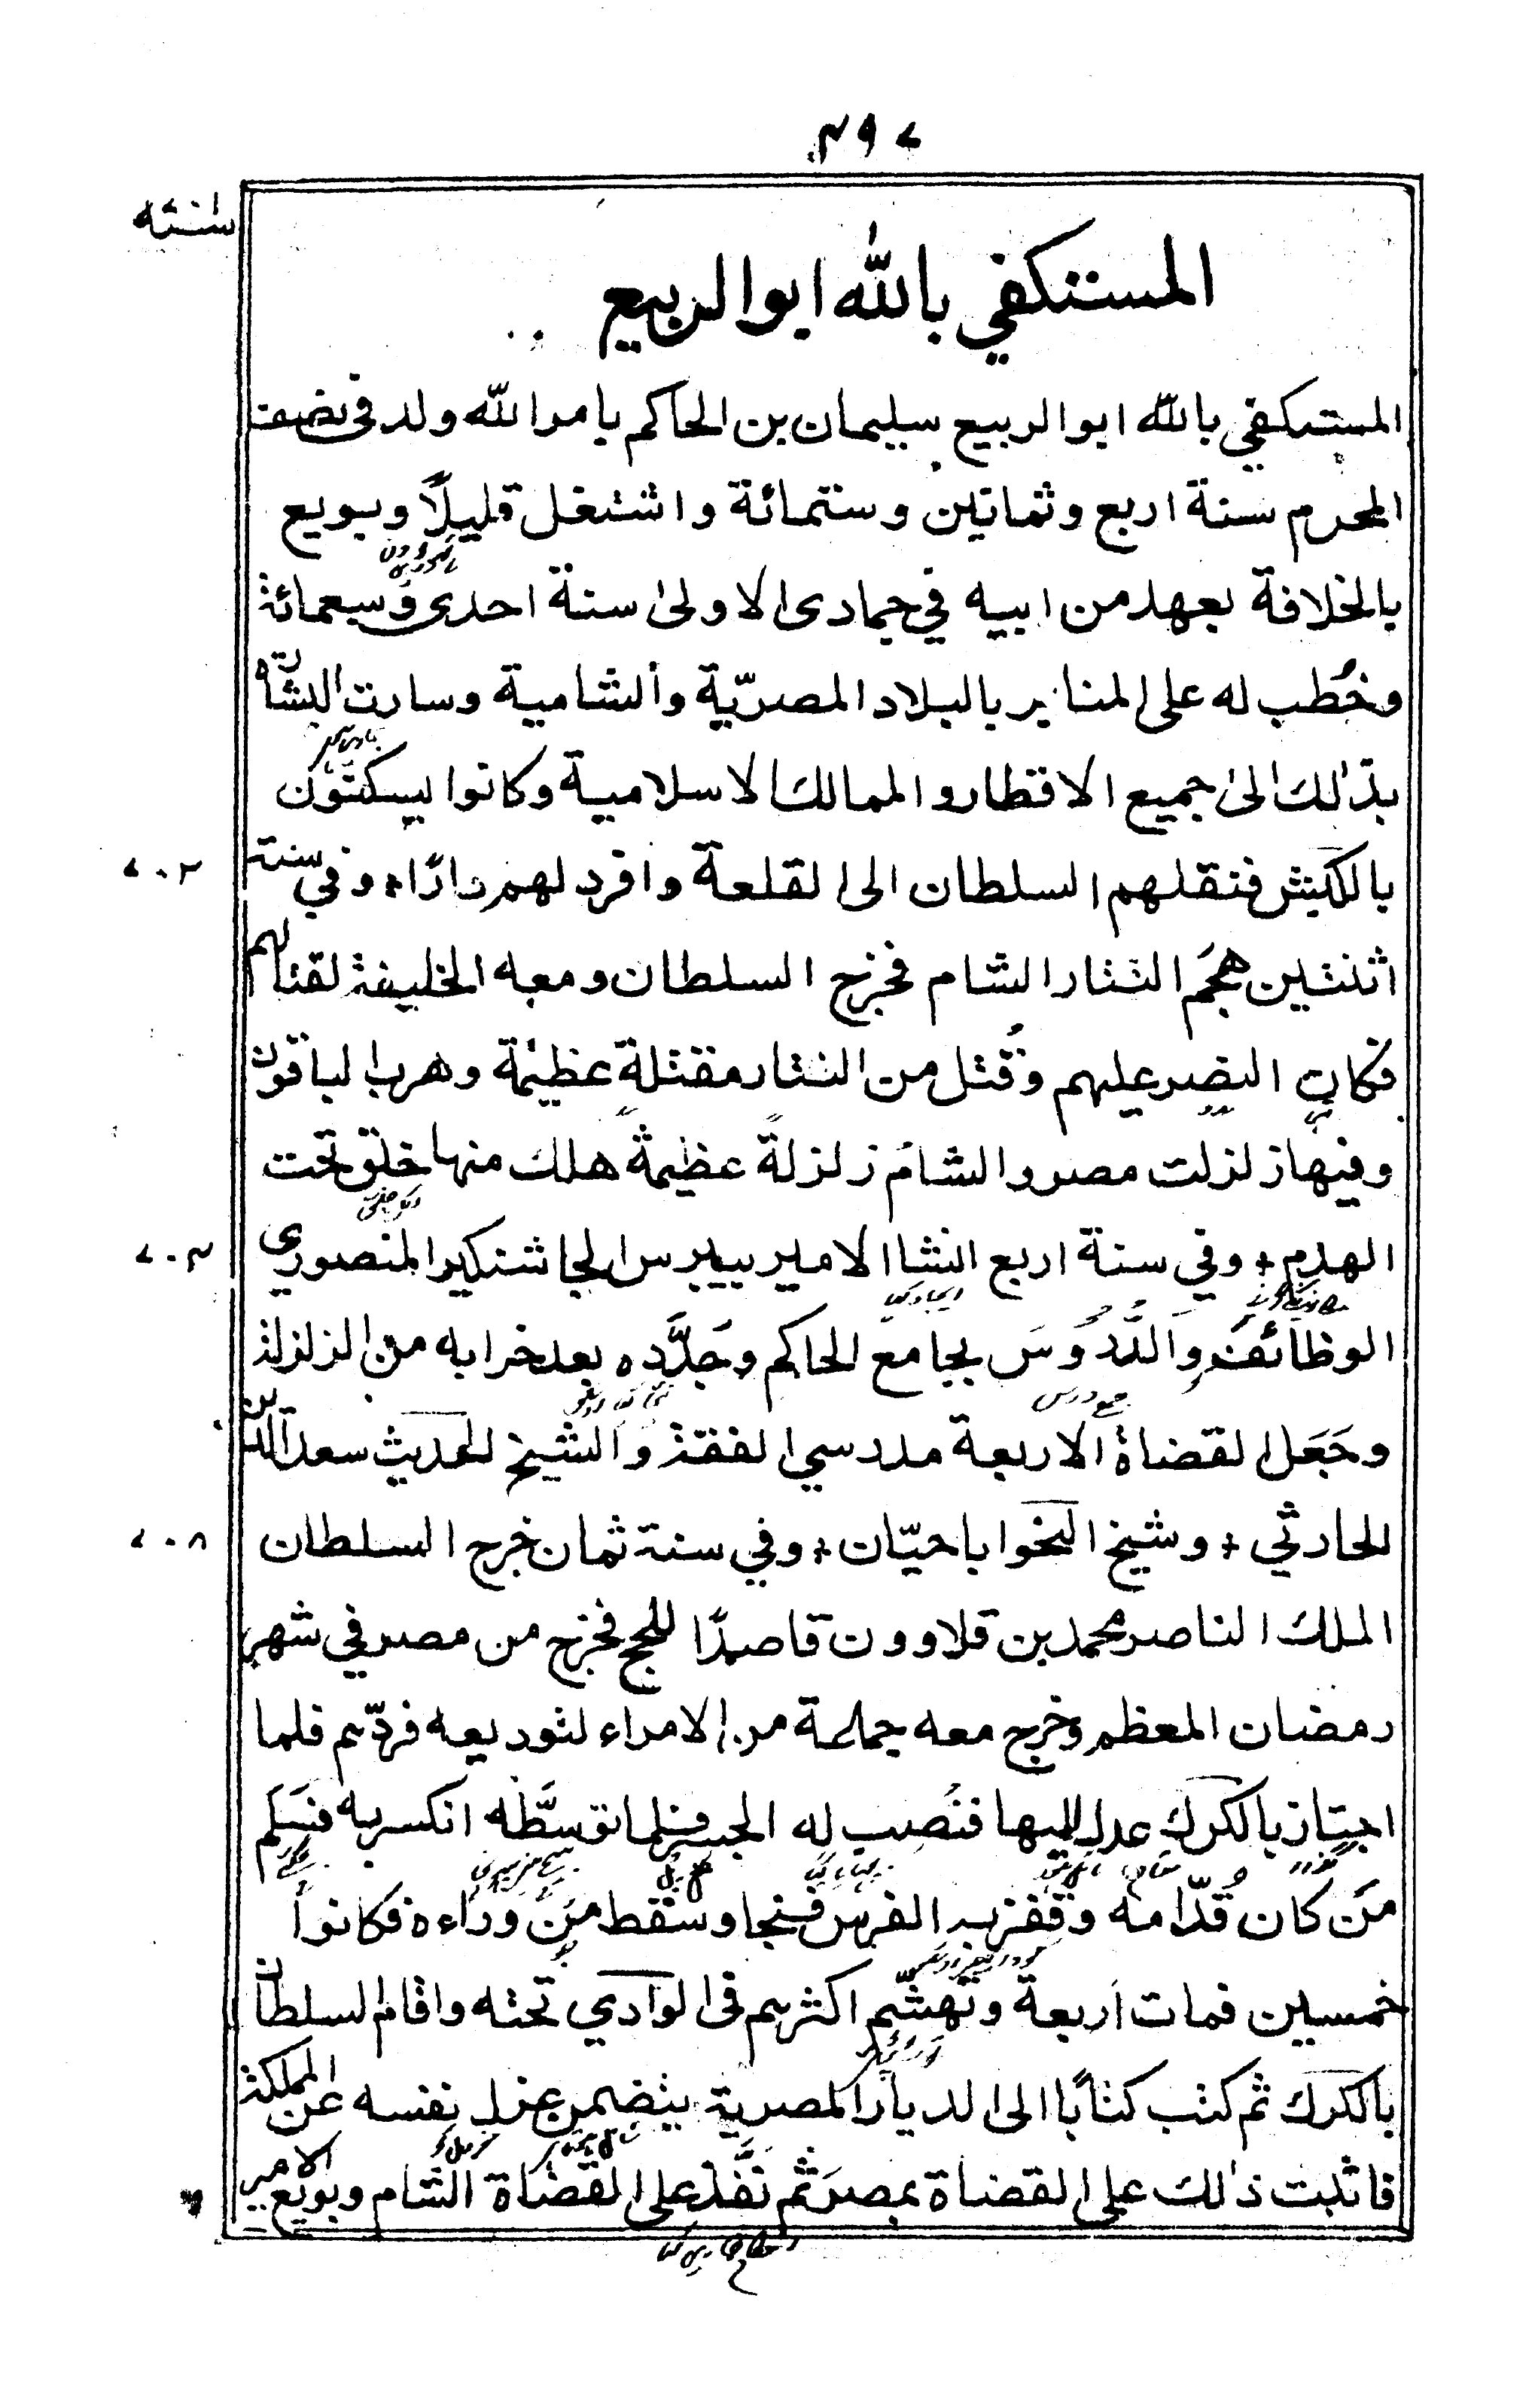 ٤٩٧
سنة
المستكفي بالله ابوالربيع
المستكفي بالله ابوالربيع سليمان بن الحاكم بامرالله ولد في نصف
المحرم سنة اربع وثمانين وستمائة واشتغل قليلًا وبويع
بالخلافة بعهد من ابيه في جمادى الاولى سنة احدى وسبعمائة
وخُطب له على المنابر بالبلاد المصريّة والشامية وسارت البشارة
بذٰلك الىٰ جميع الاقطار والممالك الاسلامية وكانوا يسكنون
بالكبش فنقلهم السلطان الى القلعة وافرد لهم دارًا + وفي سنة
٧٠٢
اثنتين هجَم التتار الشام فخرج السلطان ومعه الخليفة لقتالهم
فكان النصر عليهم وقُتل من التتار مقتلة عظيمة وهرب الباقون
وفيها زلزلت مصر والشام زلزلةً عظيمةً هلك منها خلق تحت
الهدم + وفي سنة اربع انشا الامير بيبرس الجاشنكير المنصوري
٧٠٤
الوظائف والدُّرُوسَ بجامع الحاكم وجَدَّده بعد خرابه من الزلزلة
وجَعَل القضاة الاربعة مدرسي الفقة والشيخ الحديث سعد الدين
الحارثي + وشيخ النحو اباحيّان + وفي سنة ثمان خرج السلطان
٧٠٨
الملك الناصر محمد بن قلاوون قاصدًا للحج فخرج من مصر في شهر
رمضان المعظم وخرج معه جماعة من الامراء لتوديعه فردّهم فلما
اجتاز بالكرك عدل اليها فنُصب له الجسر فلما توسَّطه انكسر به فسَلَم
مَن كان قُدّامه وقفز به الفرس فنجا وسقط مَن وراءه فكانوا
خمسين فمات اربعة وتهشّم اكثرهم في الوادي تحته واقام السلطان
بالكرك ثم كتب كتابًا الى الديار المصرية يتضمن عزل نفسه عن المملكة
فاثبت ذٰلك على القضاة بمصرَ ثم نَفَّذ على القضاة الشام وبويع الامير